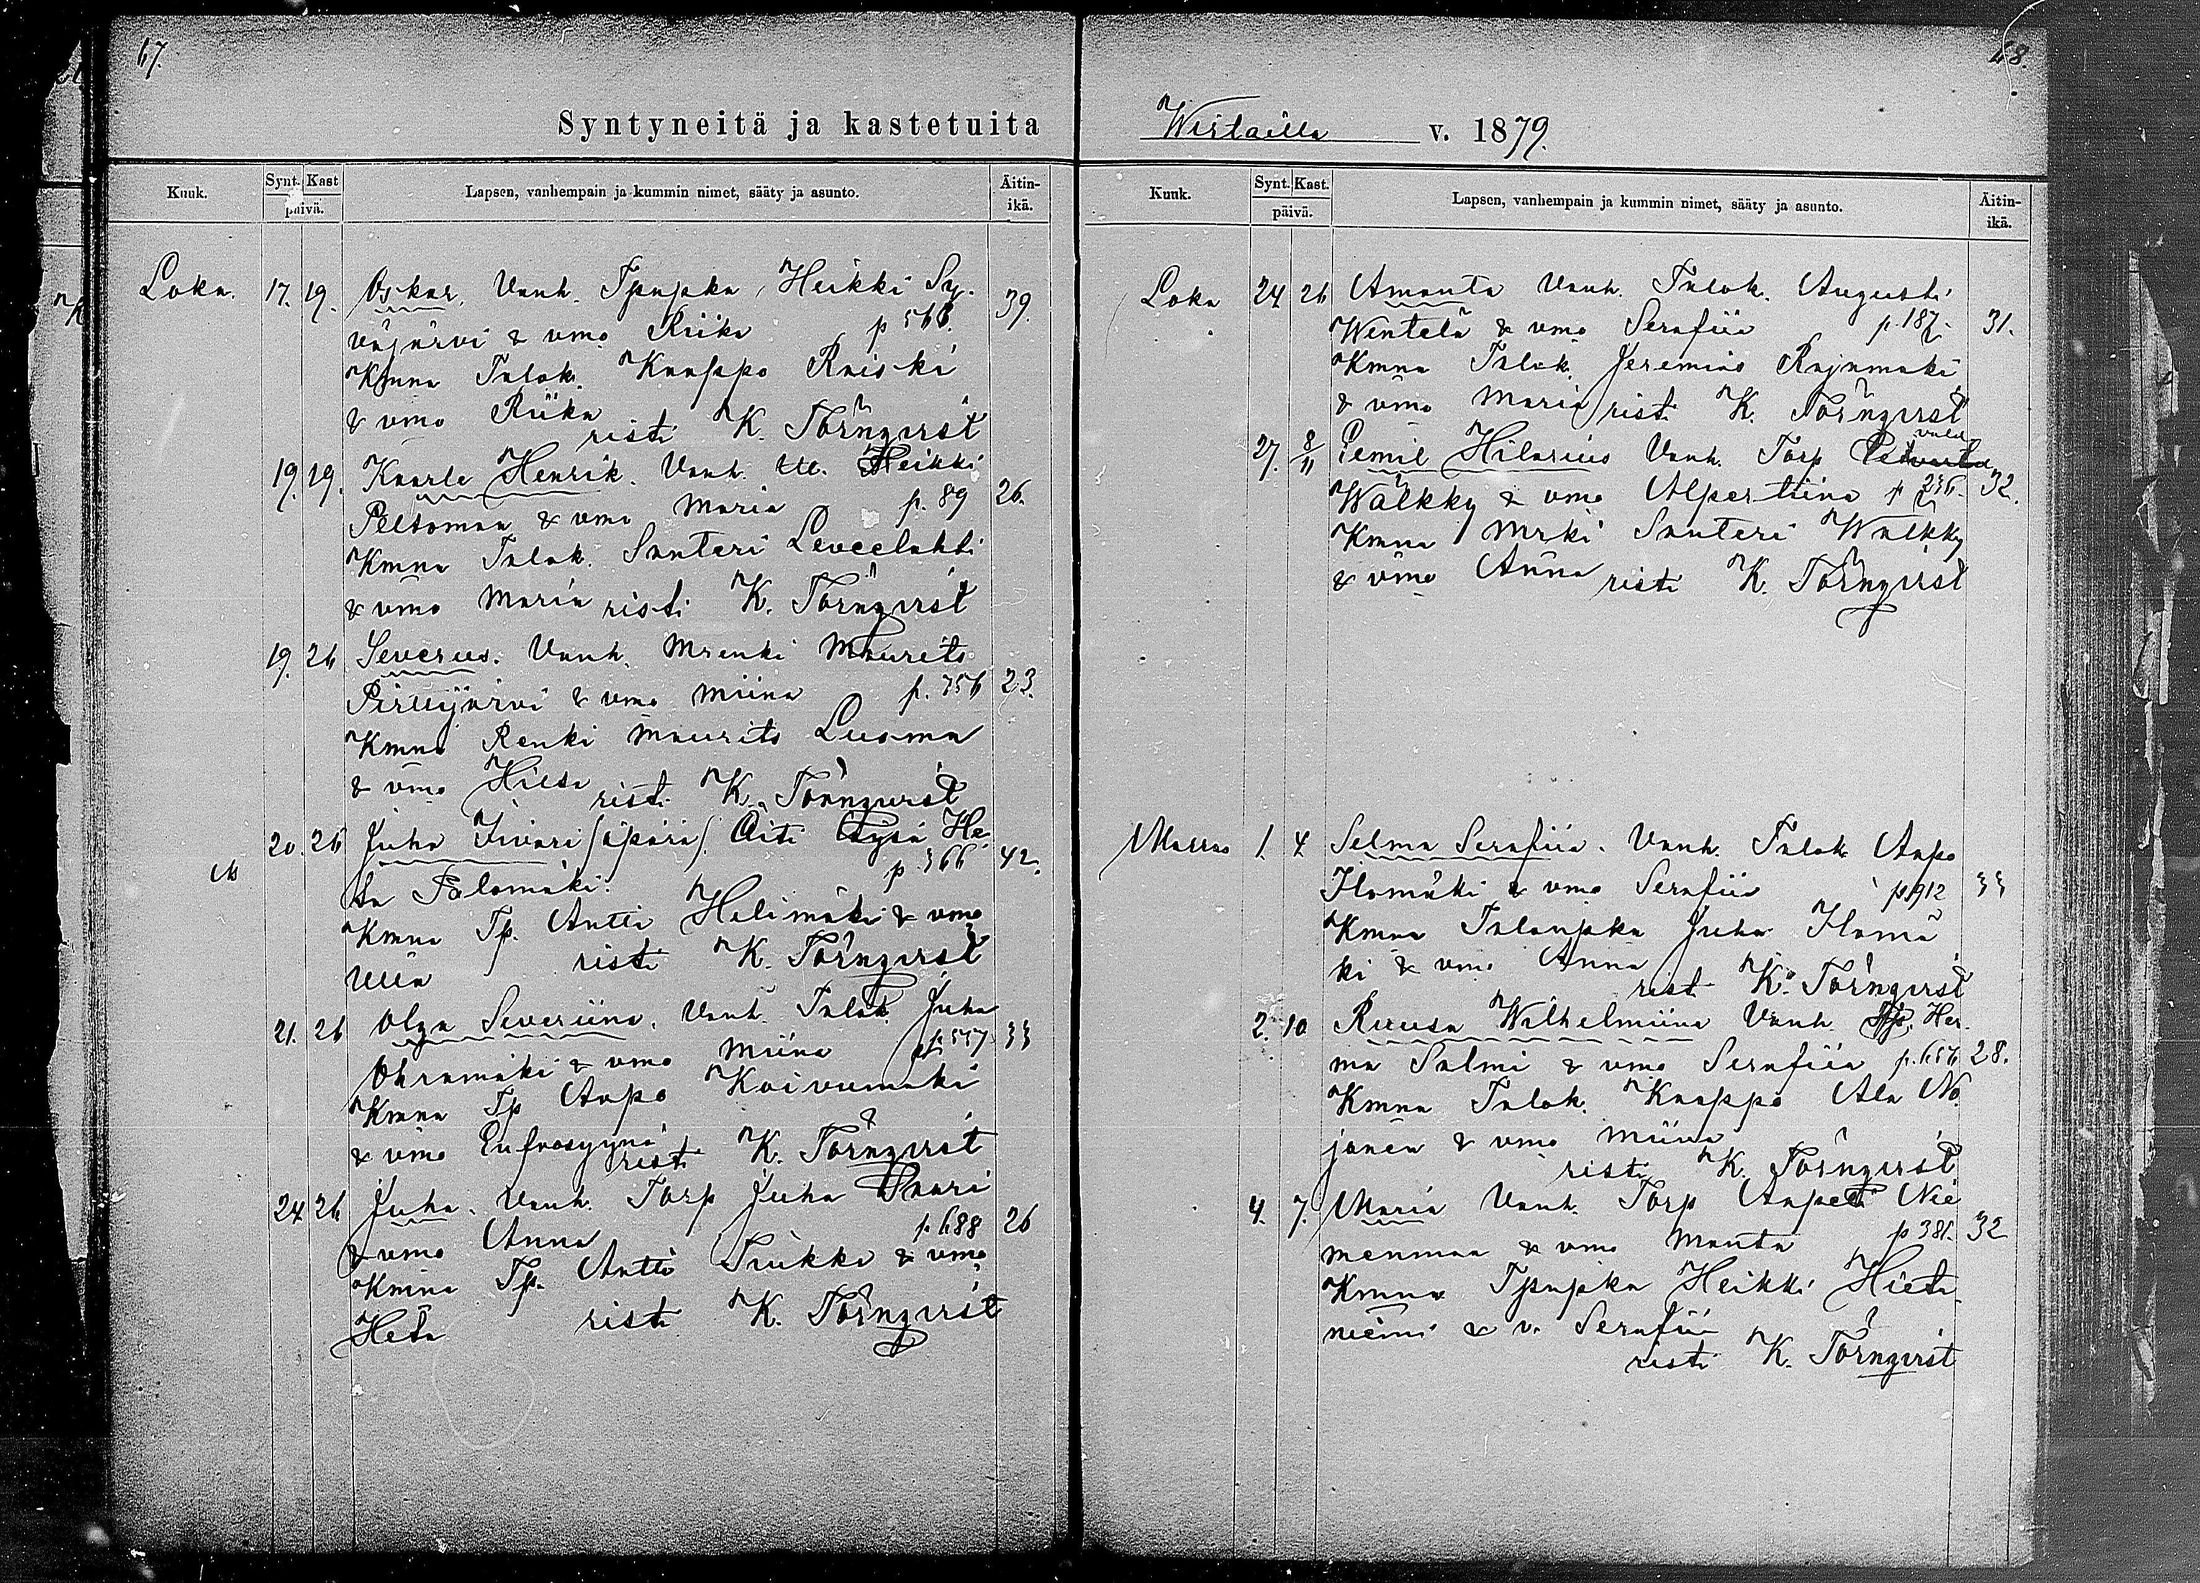 67.
Syntyneitä ja kastetuita
Kuuk. Synt. Kast päivä. Lapsen, vanhempain ja kummin nimet, sääty ja asunto. Äitin-ikä.
Loka. 17. 19. Oskar. Vanh. Tpnpka Heikki Sy-
väjärvi & vmo Riika p 566. 39.
Kmna Talok. Knappo Raiski
& vmo Riika risti K. Törnqvist
19. 19. Kaarle Henrik. Vanh. Heikki
Peltomaa & vmo Maria p. 89 26.
Kmna Talok. Santeri Leveelahti
& vmo Maria risti K. Törnqvist
19. 26 Severus. Vanh. Mrenki Maurits
Pirttijärvi & vmo Miina p. 756 23.
Kmna Renki Maurits Luoma
& vmo Hilda risti K. Törnqvist
20. 26 Juha Iivari (äpärä). Äiti He-
ta Palomäki. p 366 42.
Kmna Tp. Antti Helimäki & vmo
risti K. Törnqvist
21. 26 Olga Severiina. Vanh. Talok. Juha
Ohramäki & vmo Miina p 557 33
Kmna Tp Aapo Koivumäki
& vmo Eufrosyyna risti K. Törnqvist
24 26 Juha. Vanh. Torp Juha Saari
& vmo Anna p 688 26
Kmna Tp. Antti & vmo
Heta risti K. Törnqvist
68.
v. 1879.
Kuuk. Synt. Kast. päivä. Lapsen, vanhempain ja kummin nimet, sääty ja asunto. Äitin-ikä.
Loka 24 26 Amanta Vanh. Talok. Augusti
Wentelä & vmo Serafiia p. 187. 31.
Kmna Talok. Jeremias Rajamäki
& vmo Maria risti K. Törnqvist
27. 8/11 Eemil Hilarius Vanh. Torp
Wälkky & vmo Alpertiina p 236. 32.
Kmna Mrki Santeri Wälkky
& vmo Anna risti K. Törnqvist
Marras 1. 4 Selma Serafiia. Vanh. Talok Aapo
Ilomäki & vmo Serafiia p 912 33
Kmna Talonpka Juha Ilomä
ki & vmo Anna risti K. Törnqvist
2. 10 Ruusa Wilhelmiina Vanh. Tp. Her-
ma Salmi & vmo Serafiia p. 656 28.
Kmna Talok. Knappo Ala No
janen & vmo Miina
risti K. Törnqvist
4. 7. Maria Vanh. Torp Aapeli Nie
menmaa & vmo Manta p 381. 32
Kmna Tpnpka Heikki Hieta-
niemi & v. Serafiia
risti K. Törnqvist